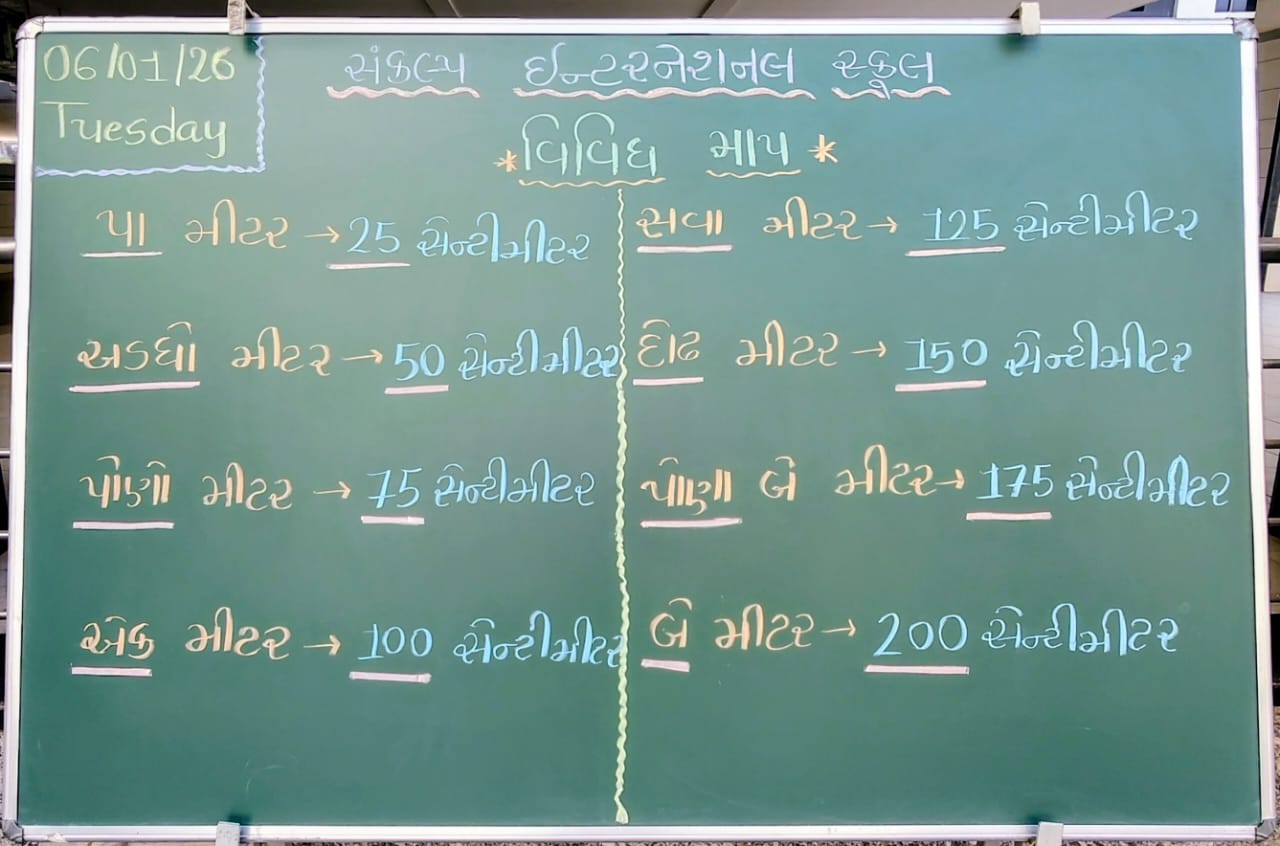 06/01/26
Tuesday
સંકલ્પ ઈન્ટરનેશનલ સ્કૂલ
* વિવિધ માપ *
પા મીટર → 25 સેન્ટીમીટર
અડધો મીટર → 50 સેન્ટીમીટર
પોણો મીટર → 75 સેન્ટીમીટર
એક મીટર → 100 સેન્ટીમીટર
સવા મીટર → 125 સેન્ટીમીટર
દોઢ મીટર → 150 સેન્ટીમીટર
પોણા બે મીટર → 175 સેન્ટીમીટર
બે મીટર → 200 સેન્ટીમીટર